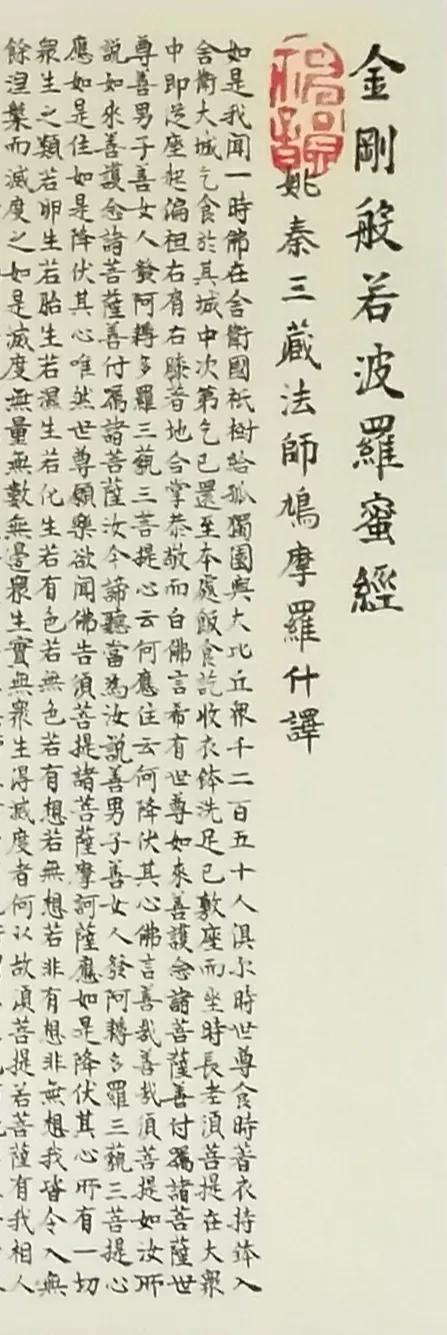 金剛般若波羅蜜經
姚秦三藏法師鳩摩羅什譯
如是我聞一時佛在舍衛國祇樹給孤獨園與大比丘眾千二百五十人俱尔時世尊食時著衣持鉢入
舍衛大城乞食於其城中次第乞已還至本處飯食訖收衣鉢洗足已敷座而坐時長老須菩提在大眾
中即從座起偏袒右肩右膝著地合掌恭敬而白佛言希有世尊如來善護念諸菩薩善付囑諸菩薩世
尊善男子善女人發阿耨多羅三藐三菩提心云何應住云何降伏其心佛言善哉善哉須菩提如汝所
說如來善護念諸菩薩善付囑諸菩薩汝今諦聽當為汝說善男子善女人發阿耨多羅三藐三菩提心
應如是住如是降伏其心唯然世尊願樂欲聞佛告須菩提諸菩薩摩訶薩應如是降伏其心所有一切
眾生之類若卵生若胎生若濕生若化生若有色若無色若有想若無想若非有想非無想我皆令入無
餘涅槃而滅度之如是滅度無量無數無邊眾生實無眾生得滅度者何以故須菩提若菩薩有我相人